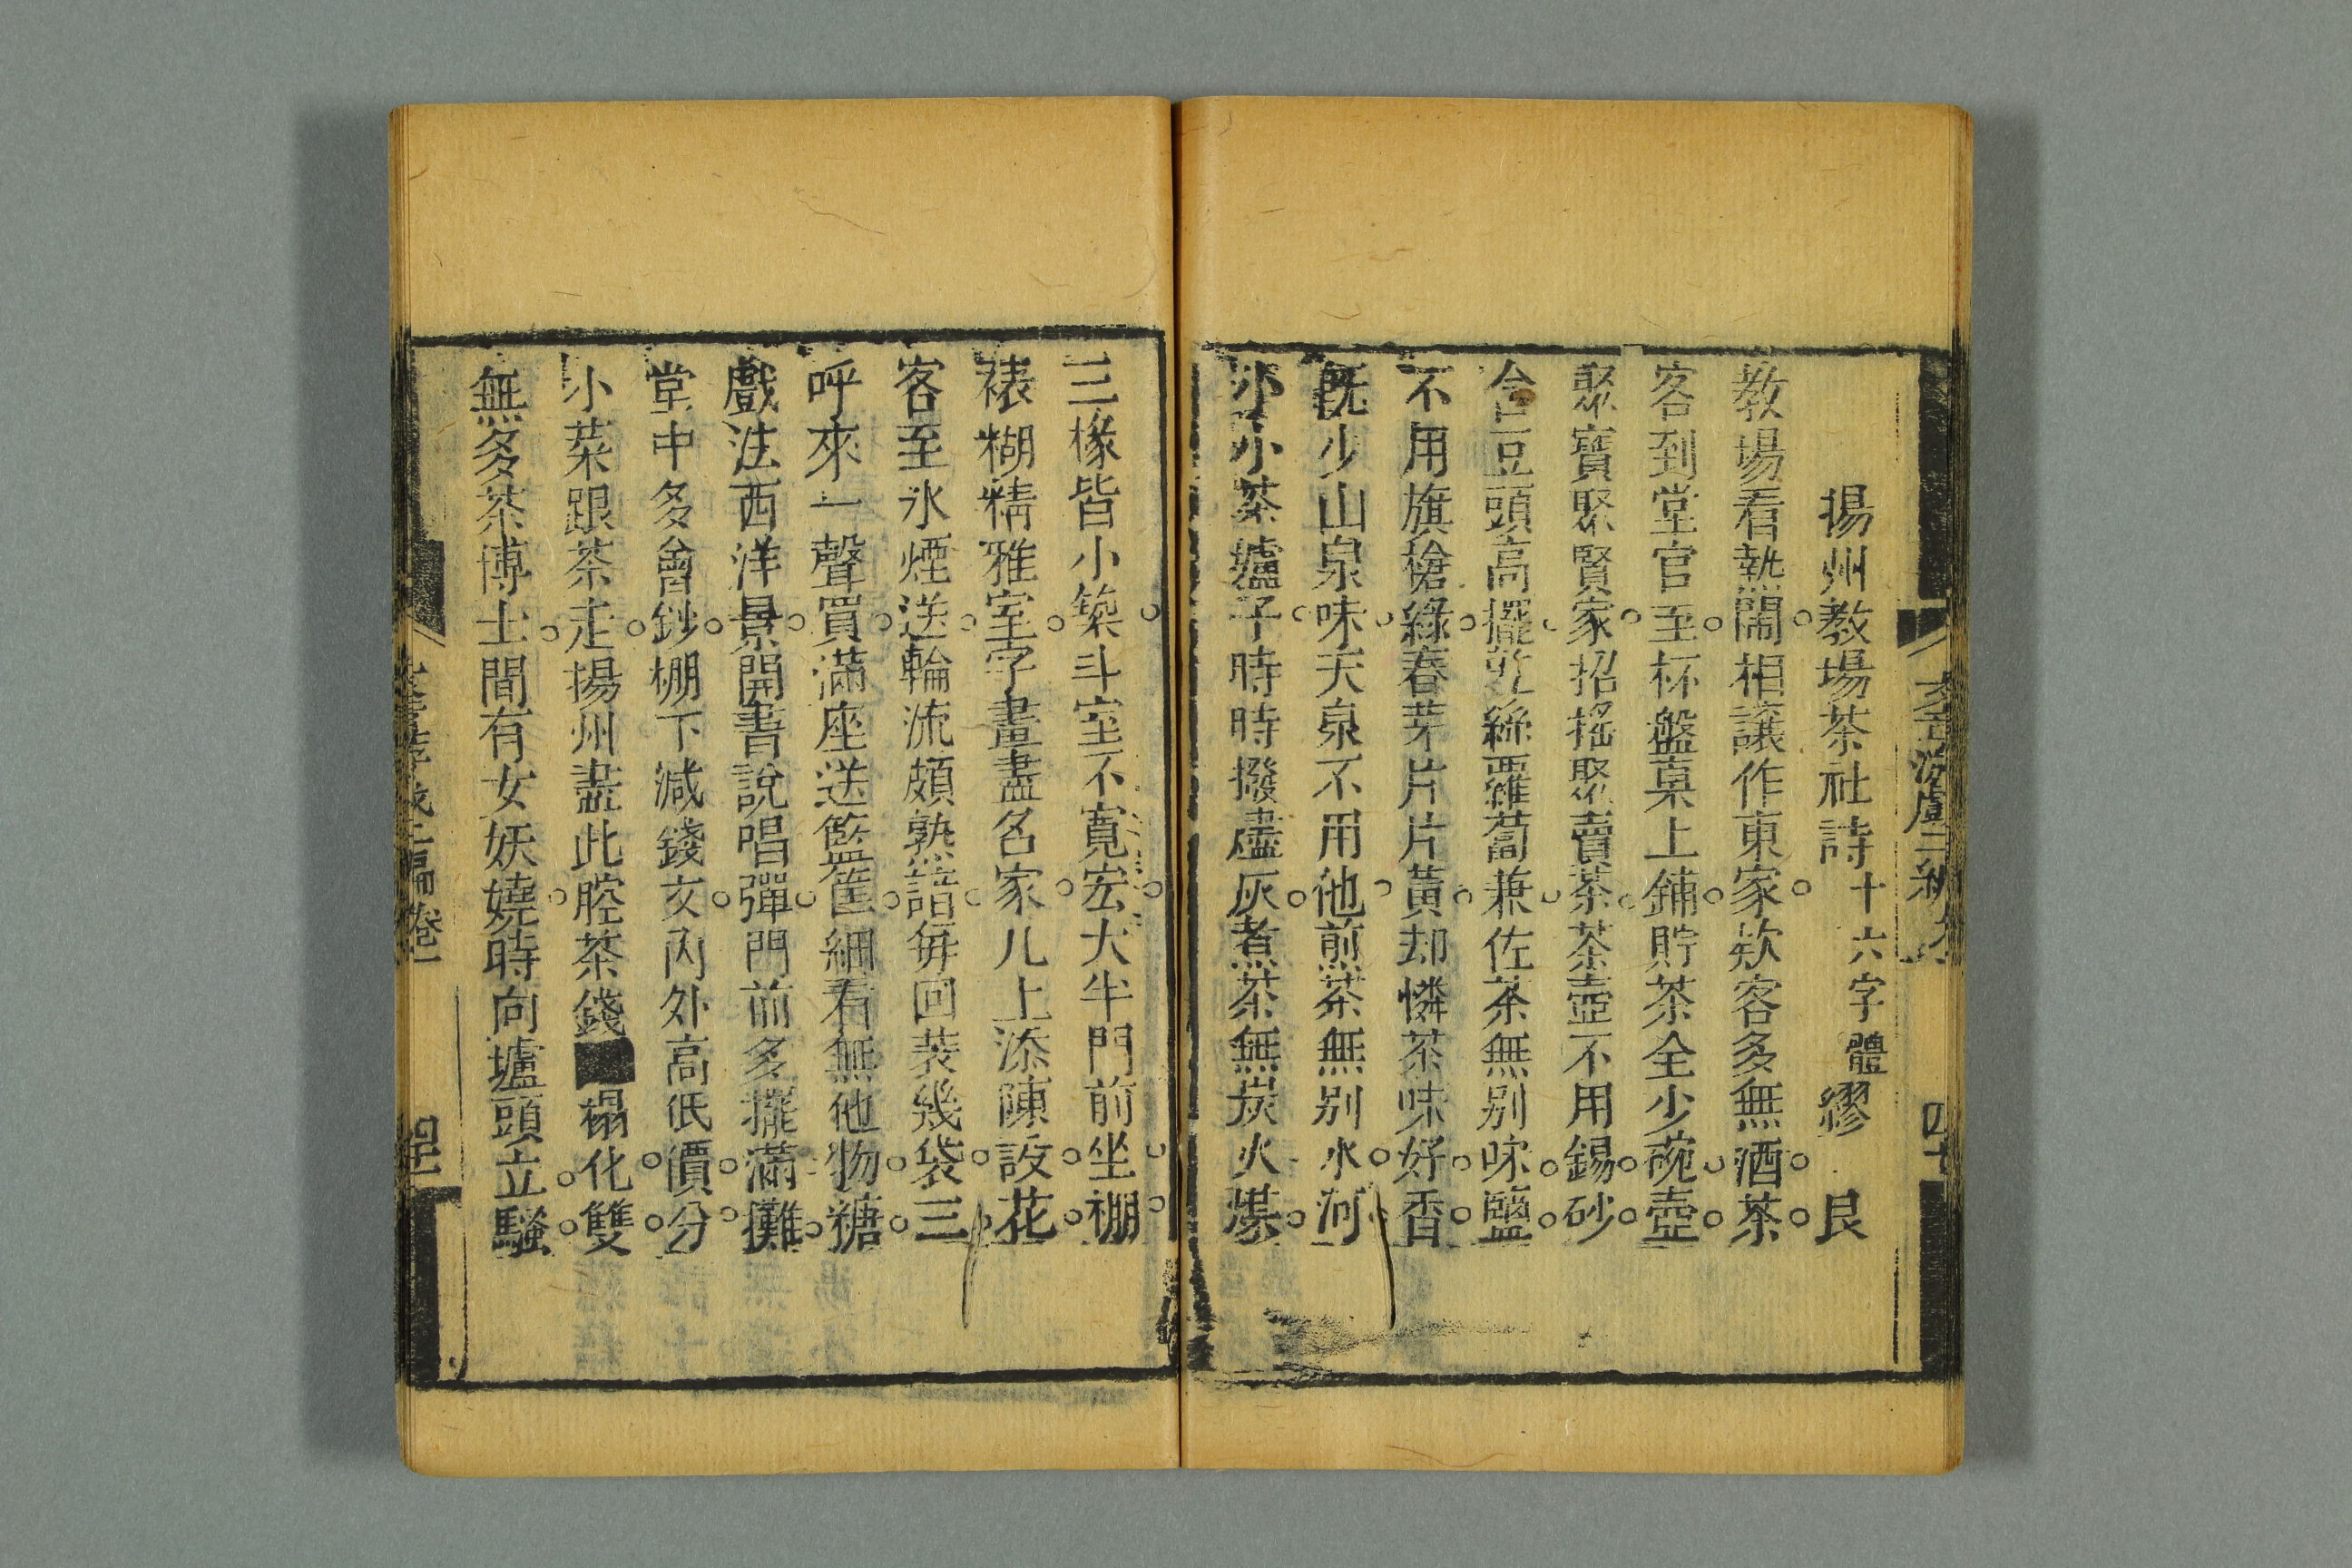 揚州教場茶社詩十六字體繆艮
教場看熱鬧相讓作東家欵客多無酒茶
客到堂官至杯盤桌上鋪貯茶全少碗壺
聚寶聚賢家招搖聚賣茶茶壺不用錫砂
合巨豆頭高擺乾絲羅蔔兼佐茶無別味鹽
不用旗槍綠春芽片片黃却憐茶味好香
既少山泉味天泉不用他煎茶無別水河
小小茶爐子時時撥盡灰煮茶無炭火煤
三椽皆小築斗室不寬宏大半門前坐棚
裱糊精雅室字畫盡名家几上添陳設花
客至水煙送輪流頗熟諳每回裝幾袋三
呼來一聲買滿座送籃筐細看無他物糖
戲法西洋景開書說唱彈門前多擺滿攤
堂中多會鈔棚下減錢文內外高低價分
小菜跟茶走揚州盡此腔茶錢 榻化雙
無多茶博士間有女妖嬈時向壚頭立騷